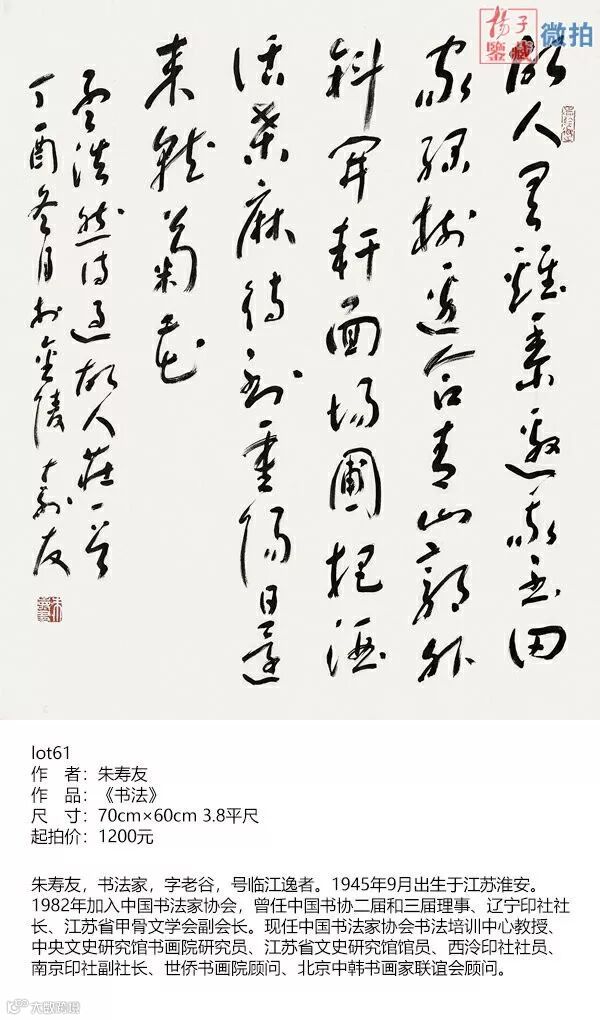 揚子
鑒藏
微拍
故人具雞黍邀我至田
家綠樹邊合青山郭外
斜開軒面場圃把酒
話桑麻待到重陽日還
来就菊花
孟浩然詩過故人莊一首
丁酉冬月於金陵壽友
lot61
作 者：朱寿友
作 品：《书法》
尺 寸：70cm×60cm 3.8平尺
起拍价：1200元
朱寿友，书法家，字老谷，号临江逸者。1945年9月出生于江苏淮安。
1982年加入中国书法家协会，曾任中国书协二届和三届理事、辽宁印社社
长、江苏省甲骨文学会副会长。现任中国书法家协会书法培训中心教授、
中央文史研究馆书画院研究员、江苏省文史研究馆馆员、西泠印社社员、
南京印社副社长、世侨书画院顾问、北京中韩书画家联谊会顾问。
大数跨境